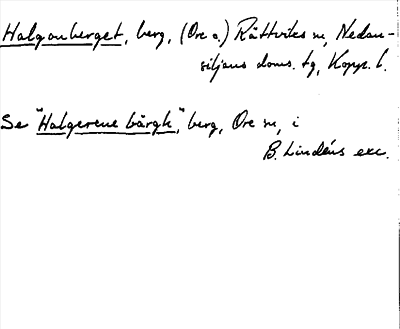 Halgonberget, berg, (Ore s.) Rättviks sn, Nedan-
siljans doms. tg, Kopp. l.
Se "Halgerene bärgh", berg, Ore sn, i
B. Lindéns exc.